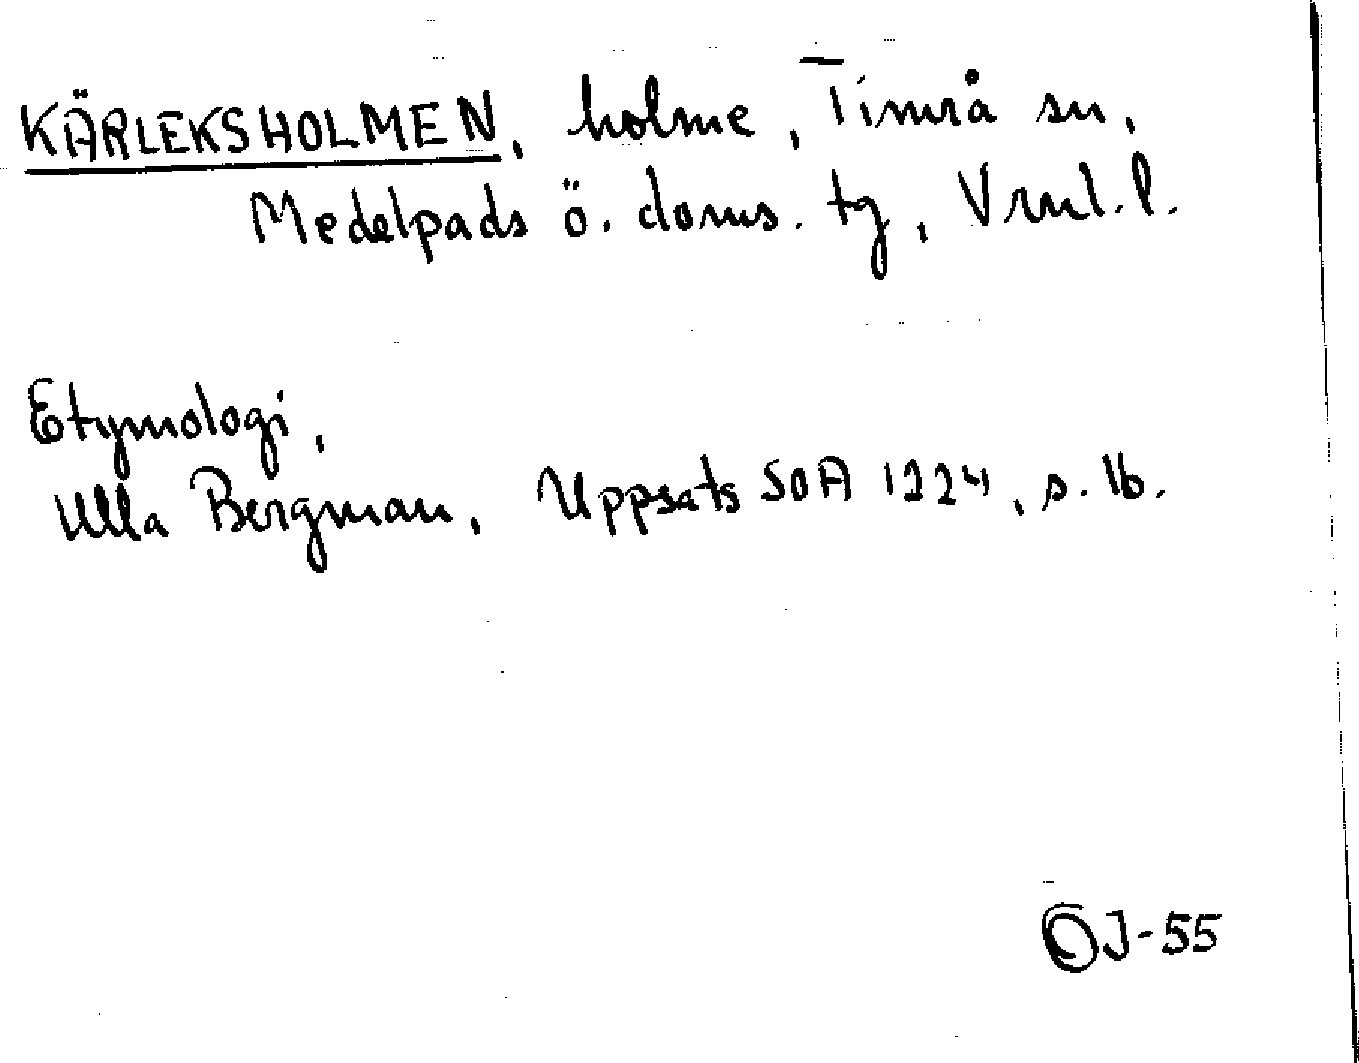 KÄRLEKSHOLMEN, holme, Timrå sn,
Medelpads ö. doms. tg, Vrnl. l.
Etymologi,
Ulla Bergman, Uppsats SOA 1224, s. 16.
OJ-55